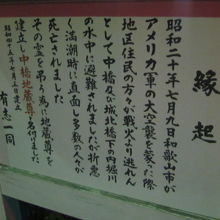 縁起
昭和二十年七月九日和歌山市が
アメリカ軍の大空襲を蒙った際
地区住民の方々が戦火より逃れん
として中橋及城北橋下の内堀川
の水中に避難されましたが折悪
く満潮時に直面し多数の人々が
死亡されました
その霊を弔う為め地蔵尊を
建立し中橋地蔵尊と名付けました
昭和四十年七月九日建立
有志一同